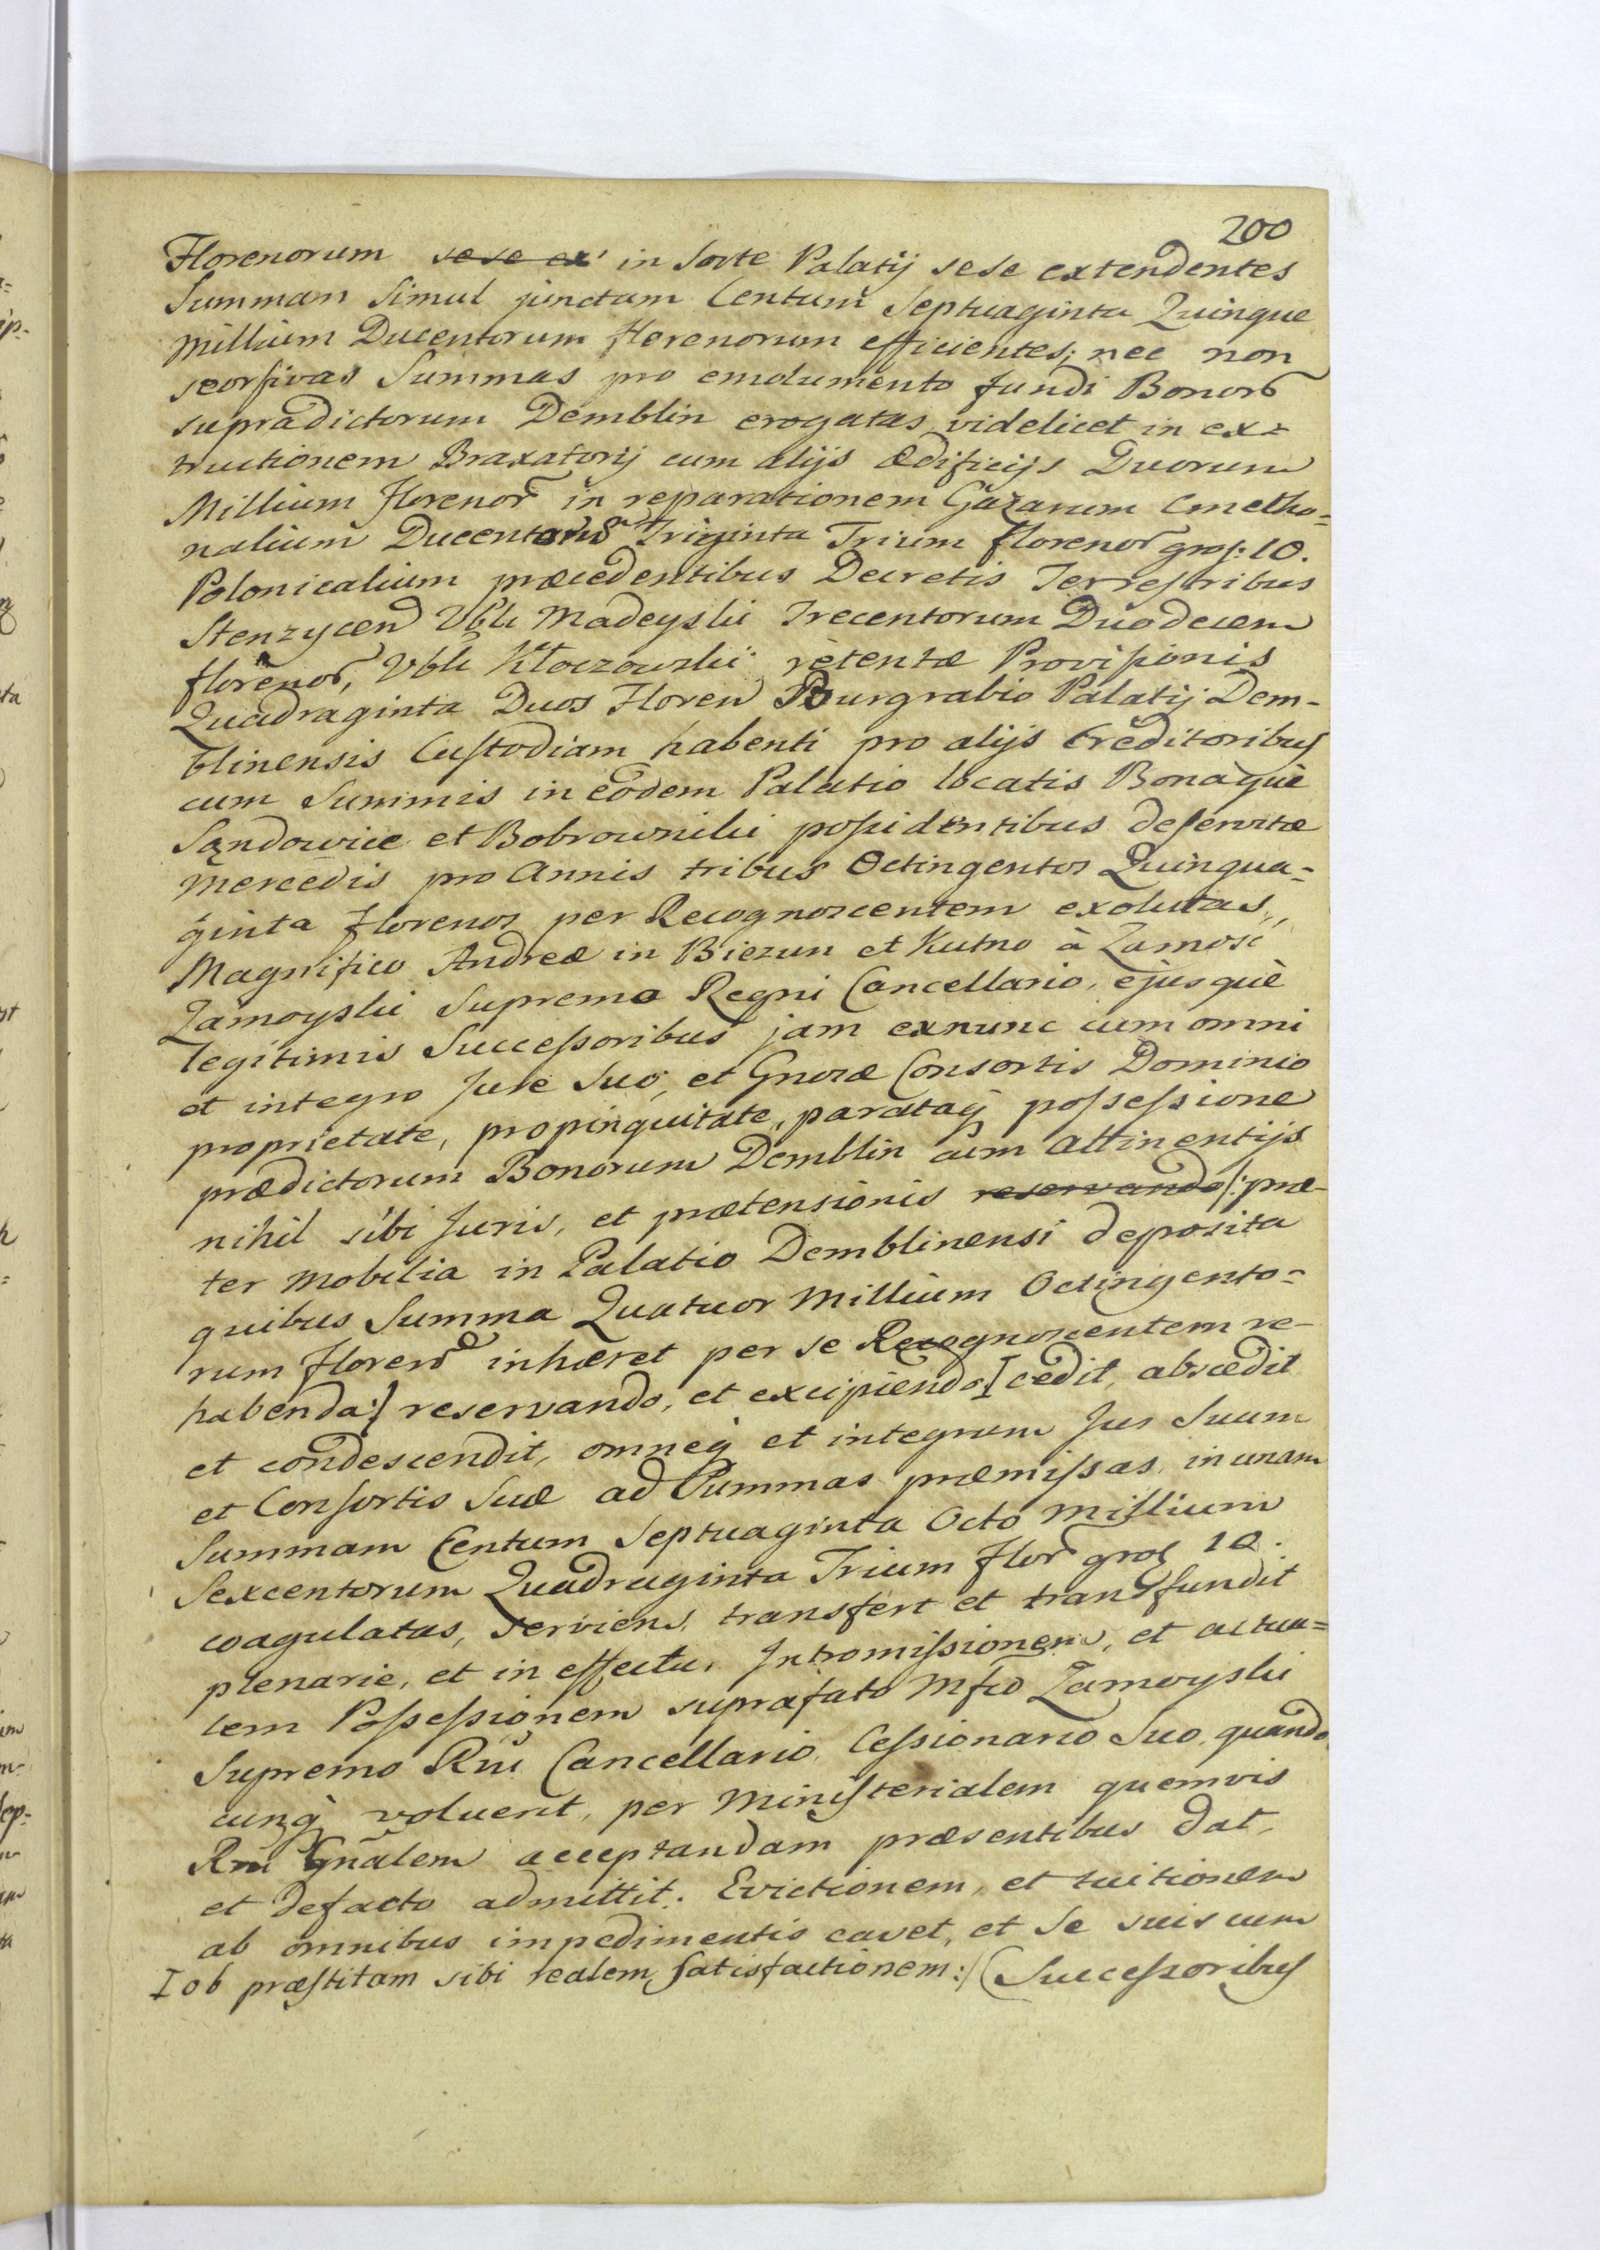 200
Florenorum sese ex in sorte Palatij sese extendentes
Summam Simul junctam Centum Septuaginta Quinque
Millium Ducentorum florenorum efficientes; nec non
seorsivas Summas pro emolumento fundi Bonor
supradictorum Demblin erogatas videlicet in ex=
tructionem Braxatorij cum alijs ædificijs Duorum
Millium florenor in reparationem Gazarum Cmetho=
nalium Ducentor Triginta Trium florenor gros: 10.
Polonicalium præcedentibus Decretis Terrestribus
Stenzycen Vbli Madeyski Trecentorum Duodecem
florenor, Vbli Kłoczowski retentæ Provisionis
Quadraginta Duos Floren Burgrabio Palatij Dem-
blinensis Custodiam habenti pro alijs Creditoribus
cum Summis in eodem Palatio locatis Bonaque
Sandowice et Bobrowniki possidentibus deservitæ
Mercedis pro Annis tribus Octingentos Quinqua=
ginta florenos per Recognoscentem exolutas,
Magnifico Andreæ in Biezun et Kutno à Zamosc
Zamoyski Supremo Regni Cancellario, ejusque
legitimis Successoribus jam exnunc cum omni
et integro Jure Suo, et Gnosæ Consortis Dominio
proprietate, propinquitate, parataq possessione
prædictorum Bonorum Demblin cum attinentijs
nihil sibi Juris, et prætensionis reservando /: præ-
ter Mobilia in Palatio Demblinensi deposita
quibus Summa Quatuor Millium Octingento=
rum floren inhæret per se Recognoscentem re-
habenda :/ reservando, et excipiendo I cedit, abscedit
et condescendit, omneq et integrum Jus Suum
et Consortis Suæ ad Summas præmissas, in unam
Summam Centum Septuaginta Octo Millium
Sexcentorum Quadraginta Trium flor gros 10.
coagulatas, serviens, transfert et transfundit
plenarie, et in effectu, Intromissionem, et actua=
lem Possessionem suprafato Mfco Zamoyski
Supremo Rni Cancellario, Cessionario Suo, quando
cunq voluerit, per Ministerialem quemvis
Rni Gnalem acceptandam præsentibus dat,
et defacto admittit. Evictionem, et tuitionem
ab omnibus impedimentis cavet, et Se suis cum
I ob præstitam sibi realem Satisfactionem :/ (Successoribus